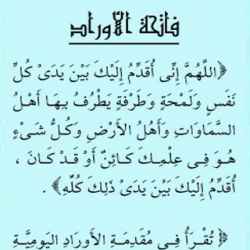 فاتحة الأوراد
﴿اللَّهُمَّ إِنِّى أُقَدِّمُ إِلَيْكَ بَيْنَ يَدَىْ كُلِّ
نَفَسٍ وَلَمْحَةٍ وَطَرْفَةٍ يَطْرُفُ بِهَا أَهْلُ
السَّمَاوَاتِ وَأَهْلُ الأَرْضِ وَكُلُّ شَىْءٍ
هُوَ فِى عِلْمِكَ كَائِنٌ أَوْ قَدْ كَانَ ،
أُقَدِّمُ إِلَيْكَ بَيْنَ يَدَىْ ذَلِكَ كُلِّهِ﴾ .
﴿تُقْرَأُ فِى مُقَدِمَةِ الأَوْرَادِ اليَوْمِيَّةِ